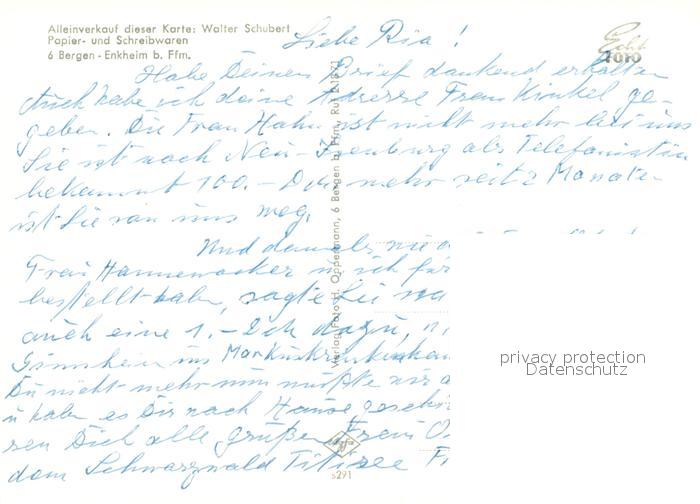 Alleinverkauf dieser Karte: Walter Schubert
Papier- und Schreibwaren
6 Bergen-Enkheim b. Ffm.
Echt Foto
Liebe Ria!
Habe Deinen Brief dankend erhalten
Auch habe ich deine Adresse Frau Kinkel ge-
geben. Die Frau Hahn ist nicht mehr bei uns
Sie ist nach Neu-Isenburg als Telefonistin
bekommt 100.- DM mehr seit 2 Monaten
ist Sie von uns weg.
Und damals wie
Frau Hannewacker u ich für
bestellt haben, sagte Sie
auch eine 1.- dazu,
Ginnheim ins Markuskrankenhau
Du nicht mehr nun mußte wir
u haben es Dir nach Hause geschi
sen Dich alle grüßen Frau
dem Schwarzwald Titisee
Verlag Foto-H. Oppermann, 6 Bergen b. Ffm., Ruf
Agfa
s291
privacy protection
Datenschutz